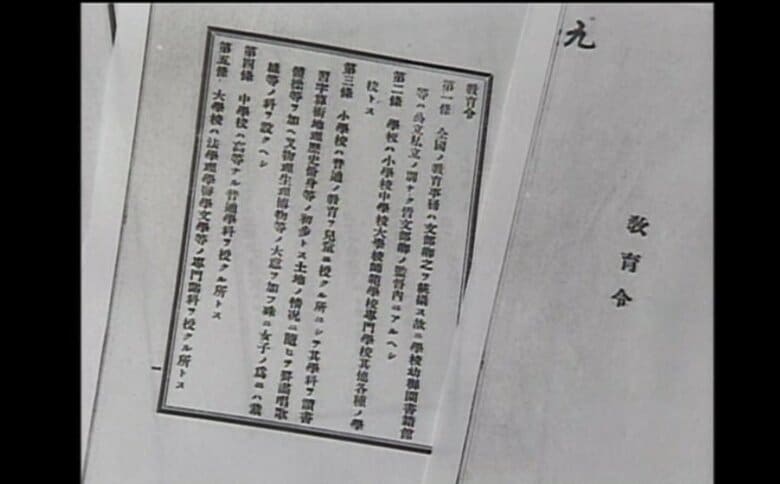 元
教育令
教育令
第一條 全國ノ教育事務ハ文部卿之ヲ統攝ス故ニ學校幼穉園書籍館
等ハ公立私立ノ別ナク皆文部卿ノ監督内ニアルヘシ
第二條 學校ハ小學校中學校大學校師範學校專門學校其他各種ノ學
校トス
第三條 小學校ハ普通ノ教育ヲ兒童ニ授クル所ニシテ其學科ヲ讀書
習字算術地理歴史修身等ノ初歩トス土地ノ情況ニ隨ヒテ罫畫唱歌
體操等ヲ加ヘ又物理生理博物等ノ大意ヲ加フ殊ニ女子ノ爲ニハ裁
縫等ノ科ヲ設クヘシ
第四條 中學校ハ高等ナル普通學科ヲ授クル所トス
第五條 大學校ハ法學理學醫學文學等ノ專門諸科ヲ授クル所トス